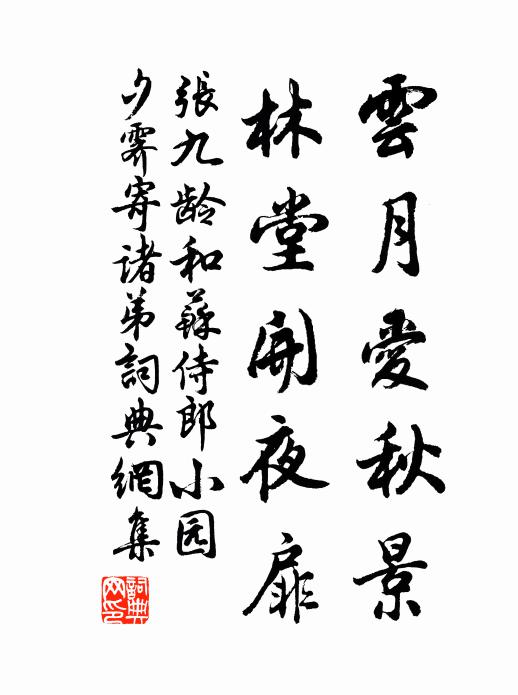 雲月愛秋景
林堂開夜扉
張九龄和蘇侍郎小园
夕霽寄诸弟詞典網集
詞典
网印